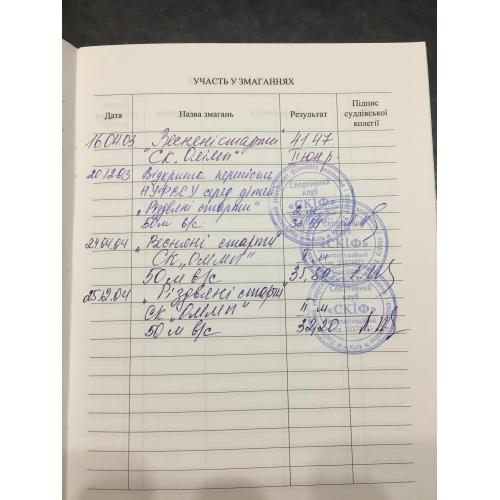 УЧАСТЬ У ЗМАГАННЯХ
Дата Назва змагань Результат Підпис суддівської колегії
16.04.03 „Весняні старти" 41.47
"СК „Олімп" II юнр.
20.12.03 Відкрита першість
НУФВСУ серед дітей
„Різдвяні старти"
50м в/с
24.04.04 „Весняні старти"
СК „Олімп" I м
50 м в/с 35,80
25.12.04 „Різдвяні старти"
СК „Олімп" II м
50 м в/с 32,20
Спортивний
клуб
«СКІФ»
Спортивний
клуб
«СКІФ»